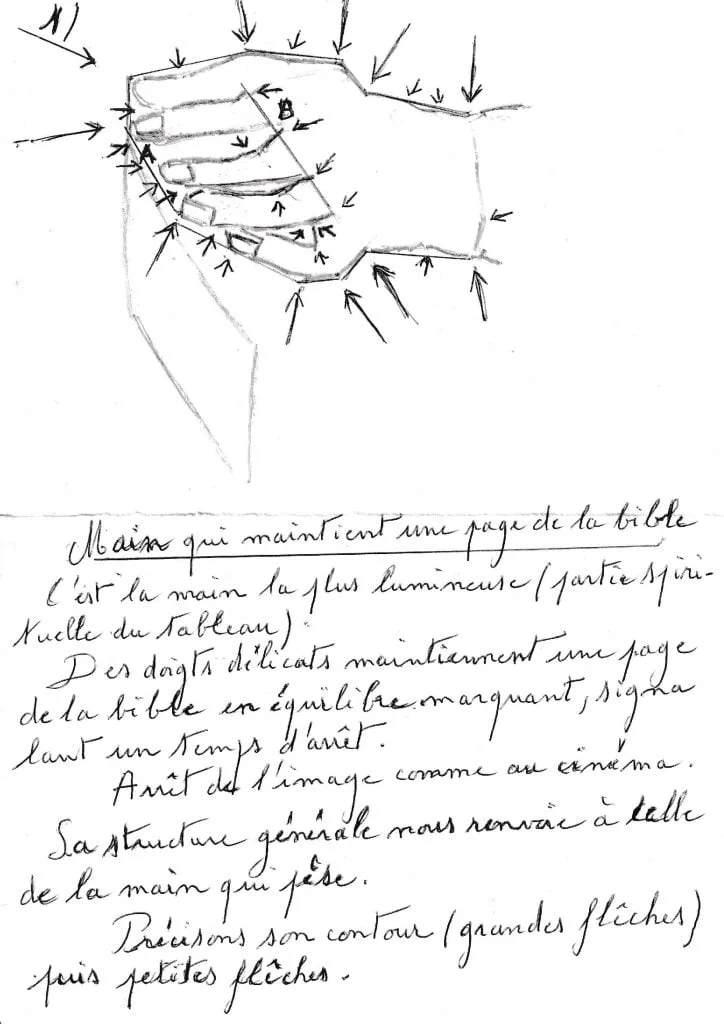 1)
B
A
Main qui maintient une page de la bible
C'est la main la plus lumineuse (partie spiri-
tuelle du tableau).
Des doigts délicats maintiennent une page
de la bible en équilibre marquant, signa
lant un temps d'arrêt.
Arrêt de l'image comme au cinéma.
Sa structure générale nous renvoie à celle
de la main qui pèse.
Précisons son contour (grandes flêches)
puis petites flêches.